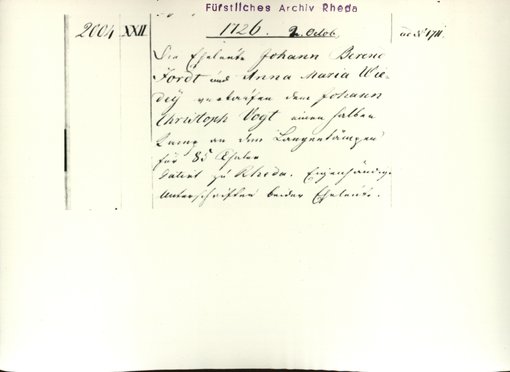 Fürstliches Archiv Rheda
2004 XXII 1726. 2. Octob.
Die Eheleute Johann Berend
Fordt und Anna Maria Wie-
dey verkaufen dem Johann
Christoph Vogt einen halben
Kamp an dem Langenkämpen
für 85 Thaler
Datirt zu Rheda. Eigenhändige
Unterschriften beider Eheleute.